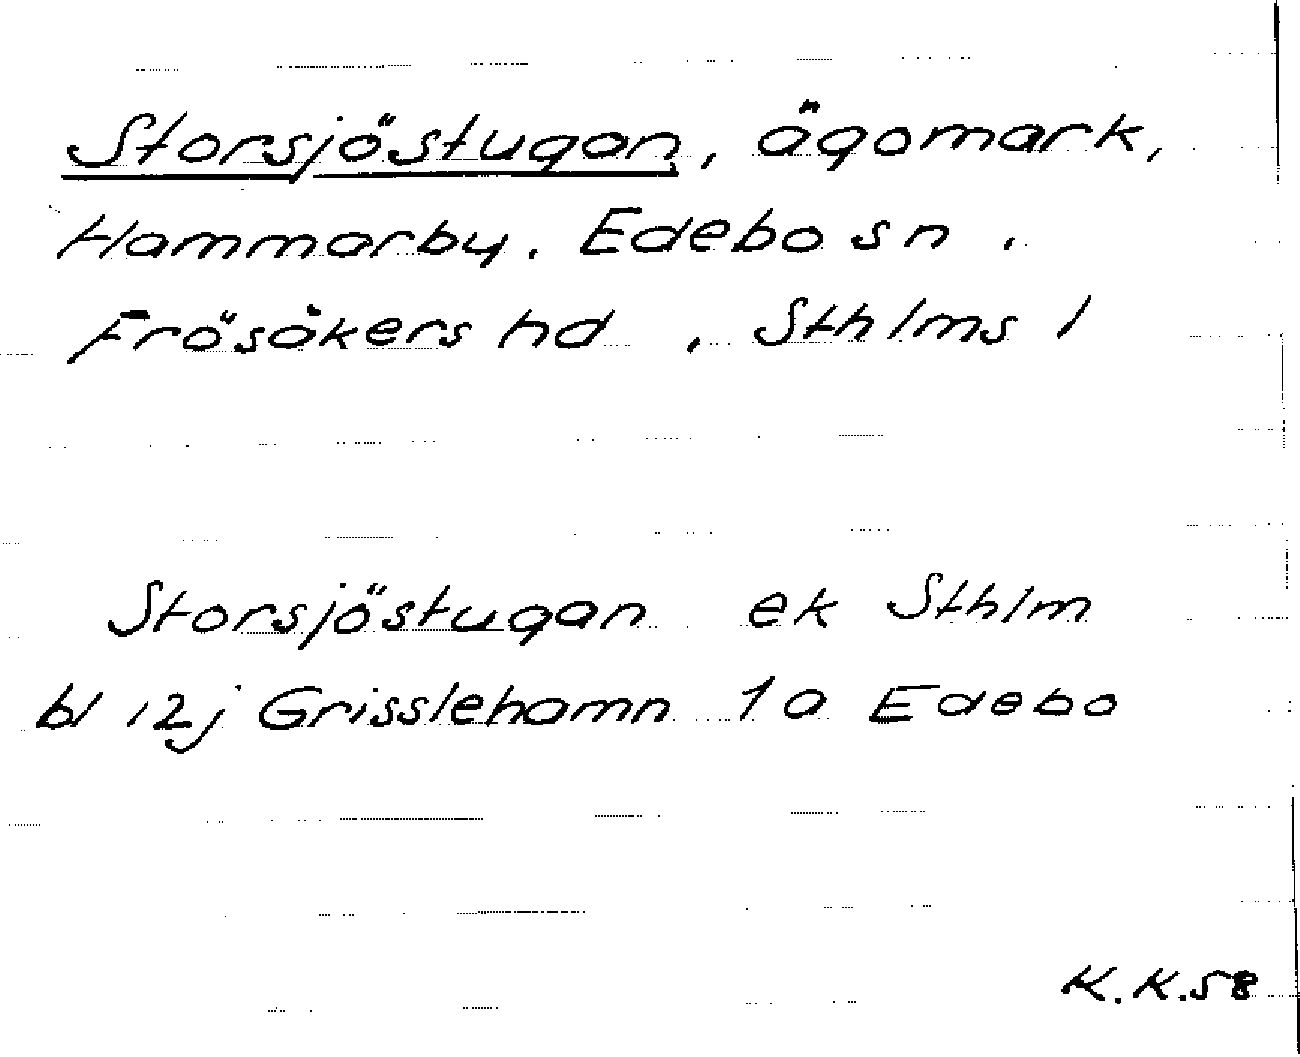 Storsjöstugan, ägomark,
Hammarby, Edebo sn,
Frösåkers hd, Sthlms l
Storsjöstugan ek Sthlm
bl 12j Grisslehamn 1a Edebo
K.K.58